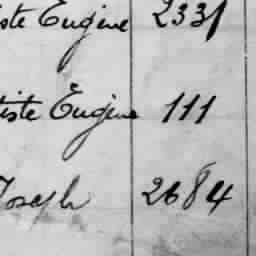 iste Eugène 2331
tiste Eugène 111
Joseph 2684